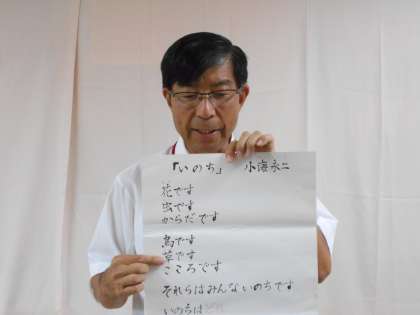 「いのち」 小海永二
花です
虫です
からだです
鳥です
草です
こころです
それらはみんないのちです
いのちは